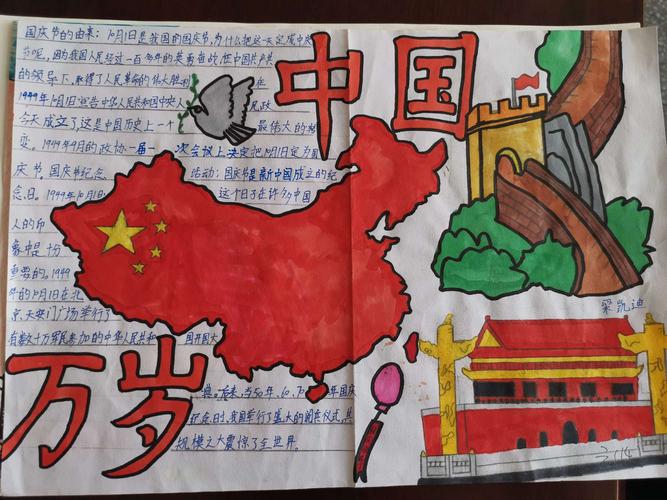 中国
国庆节的由来：10月1日是我国的国庆节,为什么把这一天定域中庆
节呢，因为我国人民经过一百多年的英勇奋战,在中国共产
的领导下,取得了人民革命的伟大胜利
1949年10月1日宣告中华人民共和国中央人民政
今天成立了,这是中国历史上一个最伟大的转
变。1949年9月的政协一届一次会议上决定把10月1日定为国
庆节。国庆节纪念活动：国庆节是新中国成立的纪
念日。1949年10月1日这个日子在许多中国
人的印
象中是十份
重要的。1949
年的10月1日在北
京天安门广场举行了
有数十万军民参加的中华人民共和国开国大
典。后来，当50年、60、70年国庆
节日时,我国举行了盛大的阅兵仪式,其
规模之大震惊了全世界。
万岁
梁凯迪